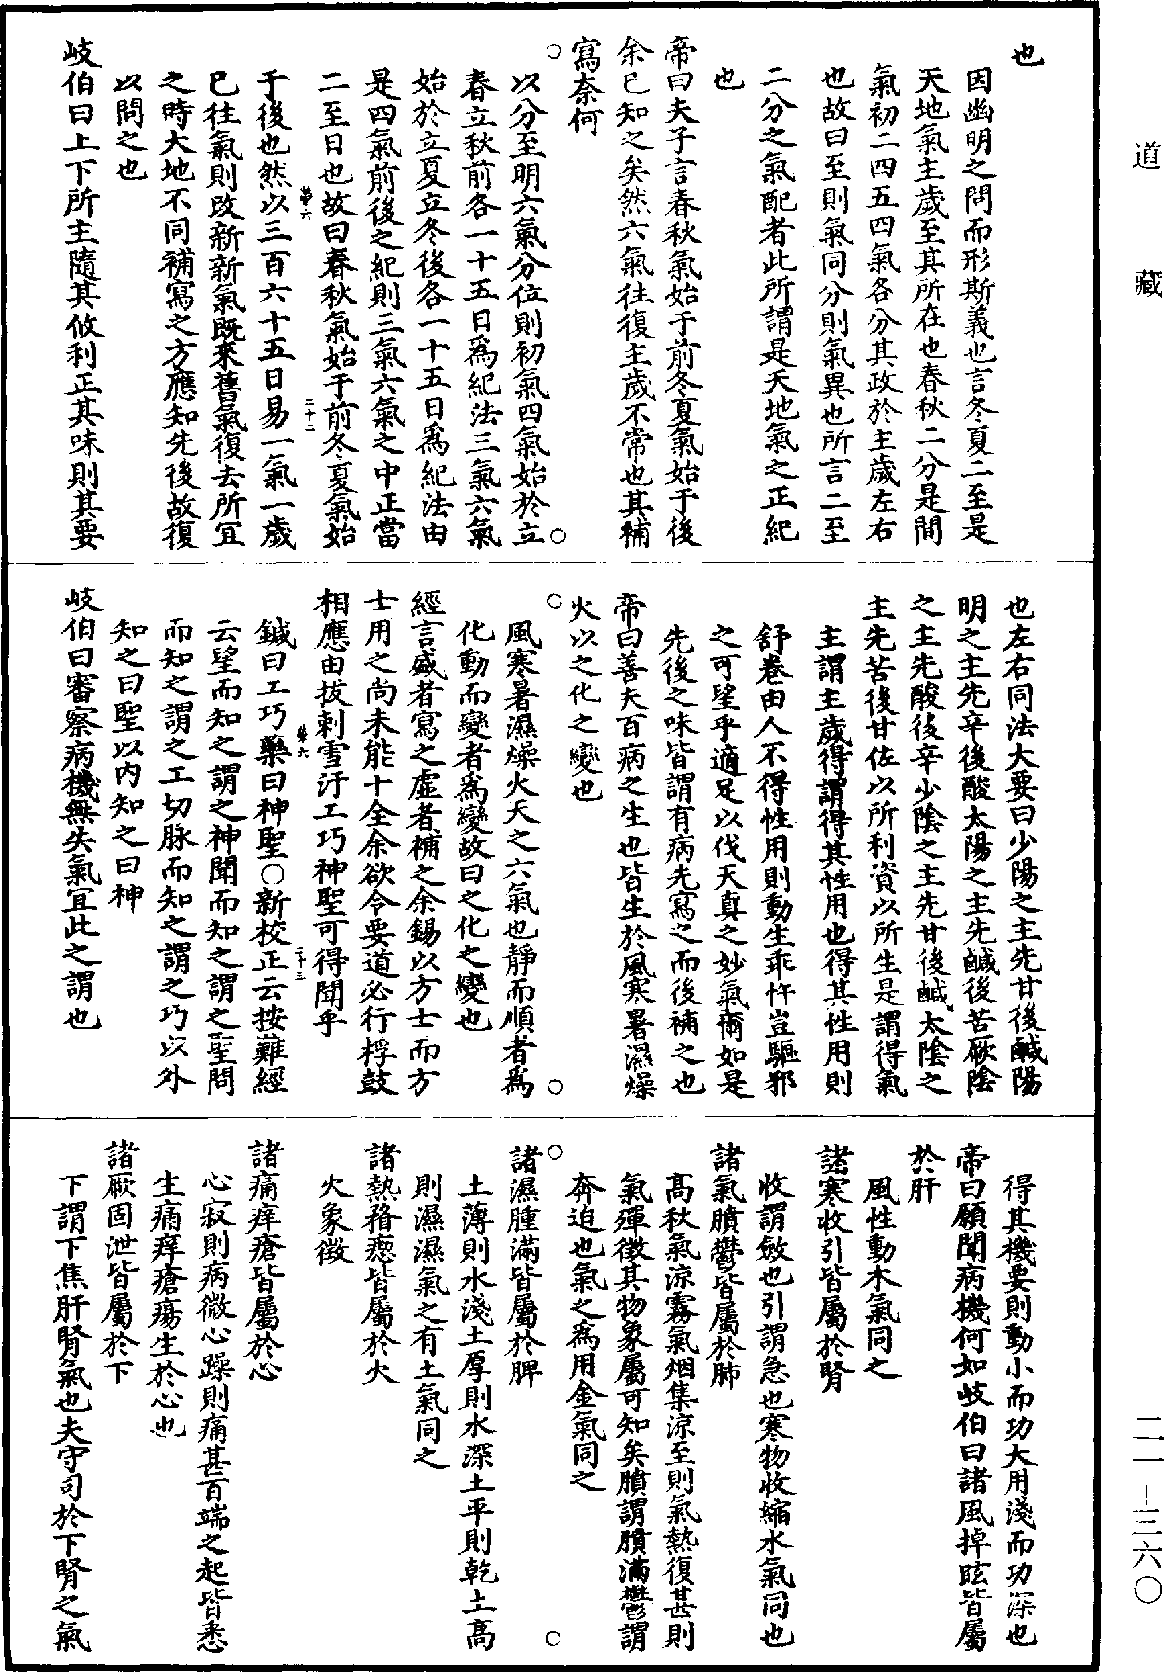 道藏
二一-三六〇
也
因幽明之問而形斯義也言冬夏二至是
天地氣主歲至其所在也春秋二分是間
氣初二四五四氣各分其政於主歲左右
也故曰至則氣同分則氣異也所言二至
二分之氣配者此所謂是天地氣之正紀
也
帝曰夫子言春秋氣始于前冬夏氣始于後
余已知之矣然六氣往復主歲不常也其補
寫奈何
以分至明六氣分位則初氣四氣始於立
春立秋前各一十五日為紀法三氣六氣
始於立夏立冬後各一十五日為紀法由
是四氣前後之紀則三氣六氣之中正當
二至日也故曰春秋氣始于前冬夏氣始
于後也然以三百六十五日易一氣一歲
已往氣則改新新氣既來舊氣復去所宜
之時大地不同補寫之方應知先後故復
以問之也
岐伯曰上下所主隨其攸利正其味則其要
也左右同法大要曰少陽之主先甘後鹹陽
明之主先辛後酸太陽之主先鹹後苦厥陰
之主先酸後辛少陰之主先甘後鹹太陰之
主先苦後甘佐以所利資以所生是謂得氣
主謂主歲得謂得其性用也得其性用則
舒卷由人不得性用則動生乖忤豈驅邪
之可望乎適足以伐天真之妙氣爾如是
先後之味皆謂有病先寫之而後補之也
帝曰善夫百病之生也皆生於風寒暑濕燥
火以之化之變也
風寒暑濕燥火天之六氣也靜而順者為
化動而變者為變故曰之化之變也
經言盛者寫之虛者補之余錫以方士而方
士用之尚未能十全余欲令要道必行桴鼓
相應由拔刺雪汙工巧神聖可得聞乎
鍼曰工巧藥曰神聖○新校正云按難經
云望而知之謂之神聞而知之謂之聖問
而知之謂之工切脉而知之謂之巧以外
知之曰聖以內知之曰神
岐伯曰審察病機無失氣宜此之謂也
得其機要則動小而功大用淺而功深也
帝曰願聞病機何如岐伯曰諸風掉眩皆屬
於肝
風性動木氣同之
諸寒收引皆屬於腎
收謂斂也引謂急也寒物收縮水氣同也
諸氣膹鬱皆屬於肺
高秋氣涼霧氣烟集涼至則氣熱復甚則
氣殫徵其物象屬可知矣膹謂膹滿鬱謂
奔迫也氣之為用金氣同之
諸濕腫滿皆屬於脾
土薄則水淺土厚則水深土平則乾土高
則濕濕氣之有土氣同之
諸熱瞀瘛皆屬於火
火象徵
諸痛痒瘡皆屬於心
心寂則病微心躁則痛甚百端之起皆悉
生痛痒瘡瘍生於心也
諸厥固泄皆屬於下
下謂下焦肝腎氣也夫守司於下腎之氣